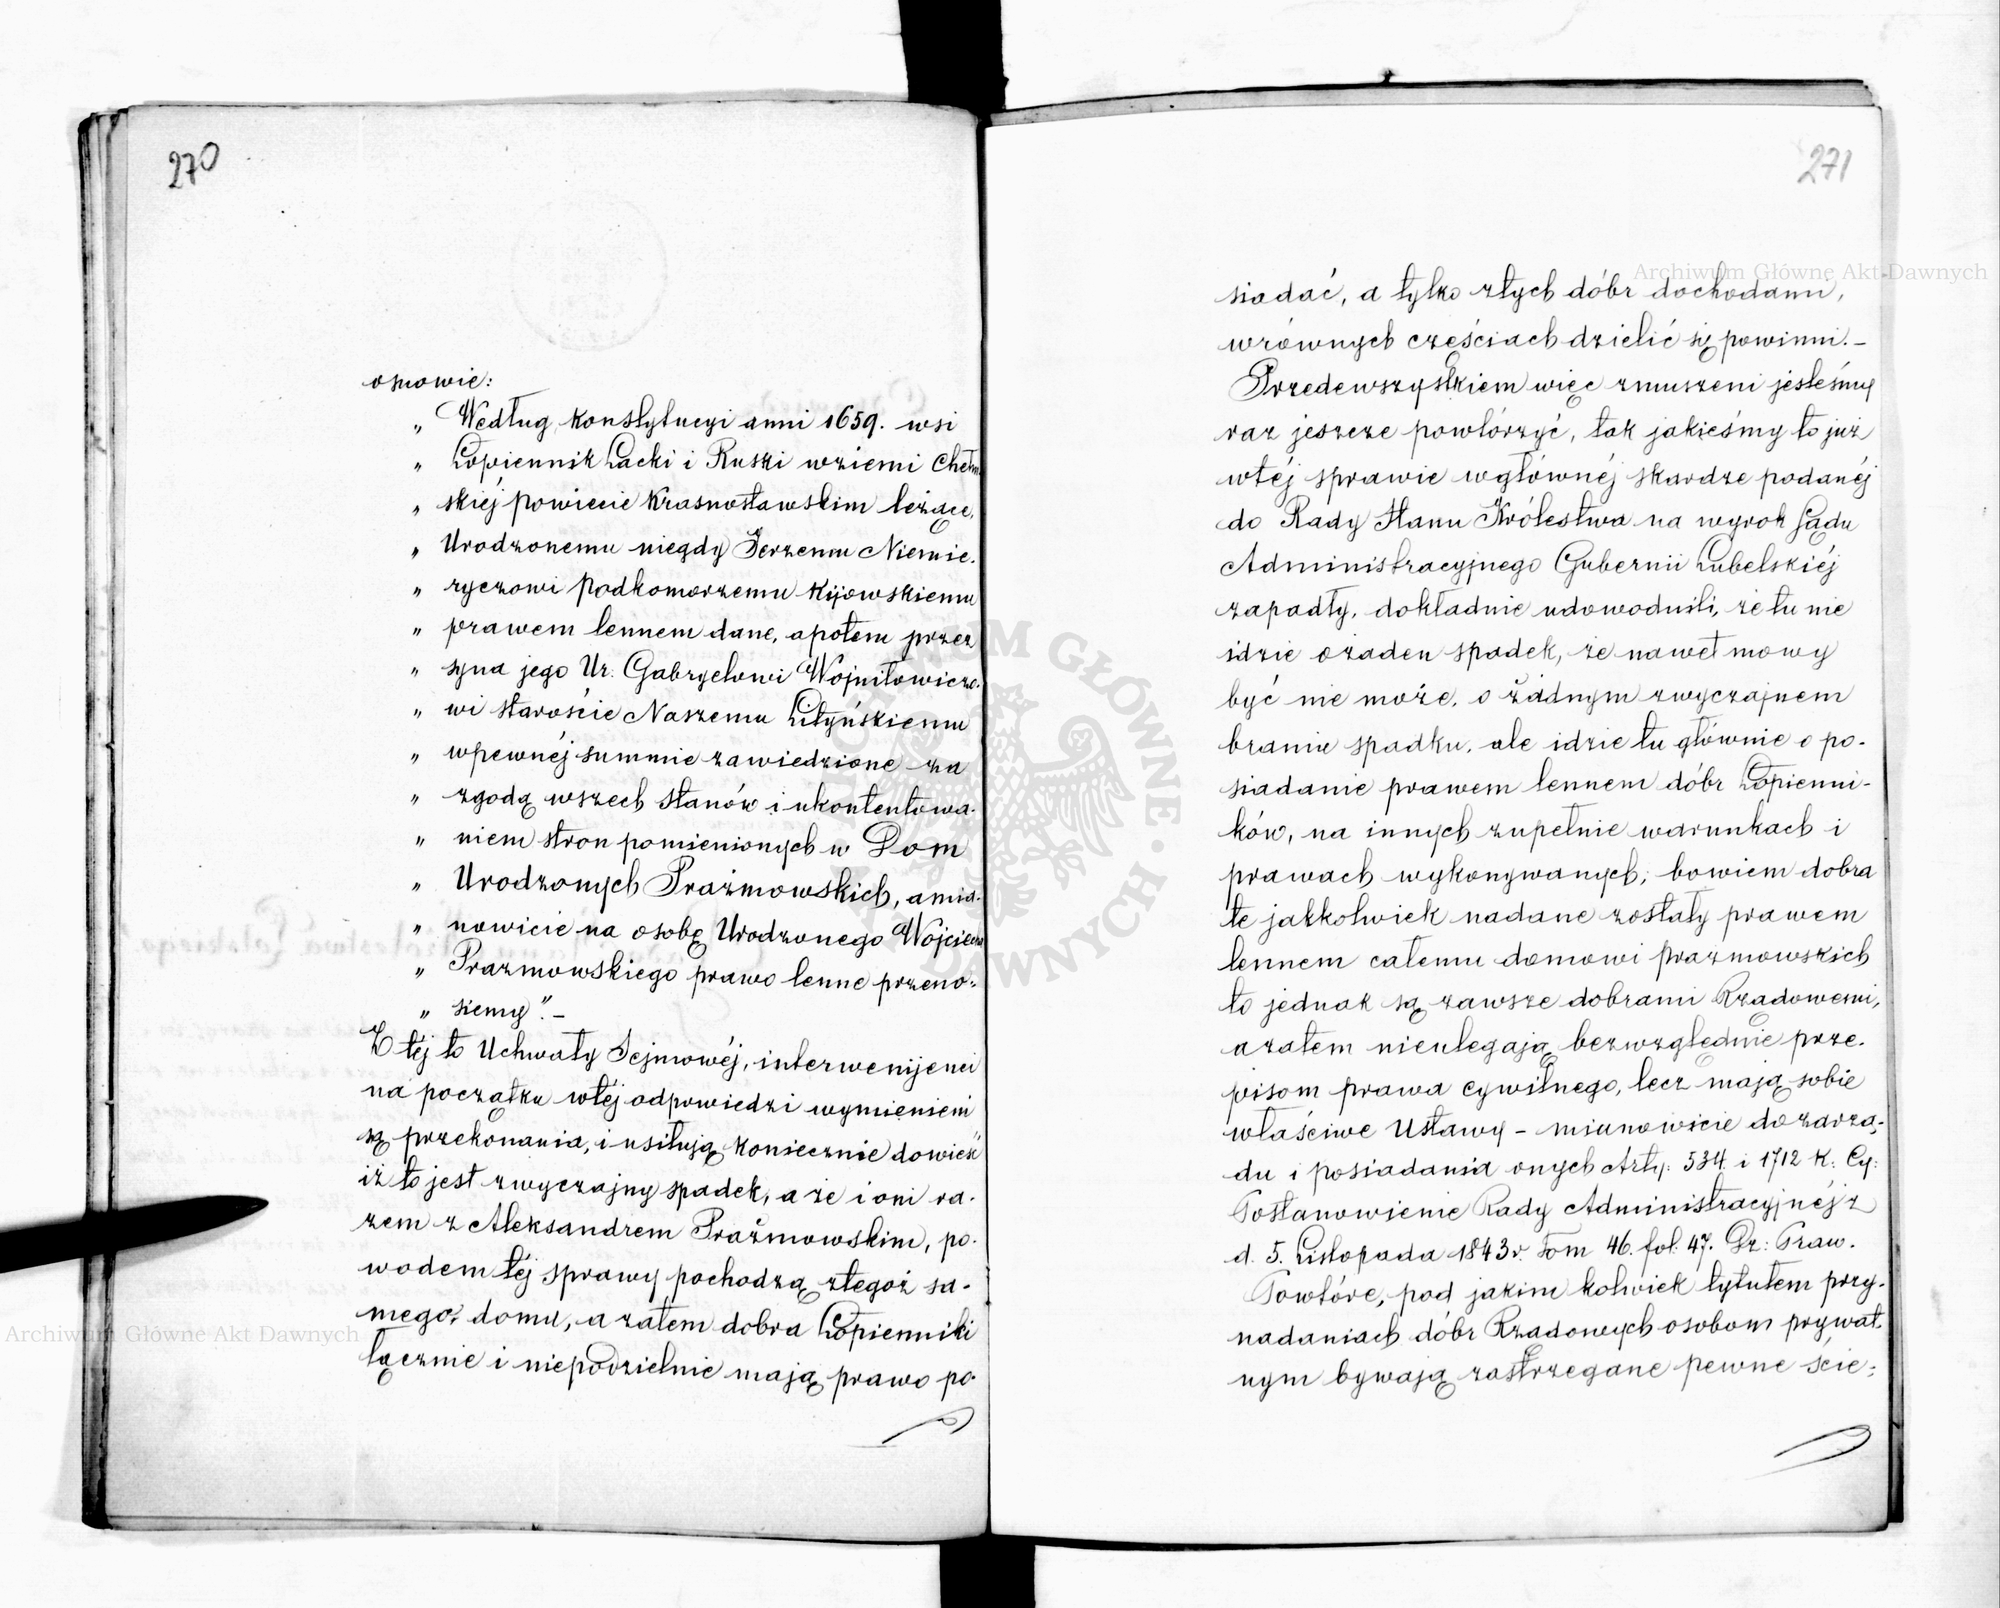 270
osnowie:
„ Według konstytucyi anni 1659. wsi
„ Łopiennik Lacki i Ruski wziemi Chełm
„ skiéj powiecie Krasnostawskim leżące,
„ Urodzonemu niegdy Jerzemu Niemie.
„ ryczowi Podkomorzemu Kijowskiemu
„ prawem lennem dane, apotem przez
„ syna jego Ur: Gabryelowi Wojniłowiczo.
„ wi staroście Naszemu Lityńskiemu
„ wpewnéj summie zawiedzione za
„ zgodą wszech stanów i ukontentowa.
„ niem stron pomienionych w Dom
„ Urodzonych Prażmowskich, amia.
„ nowicie na osobę Urodzonego Wojciecha
„ Prazmowskiego prawo lenne przeno-
„ siemy". –
Z téj to Uchwały Sejmowéj, interwenijenci
na początku wtéj odpowiedzi wymienieni
są przekonania, i usiłują koniecznie dowieść
iż to jest zwyczajny spadek, a że i oni ra.
zem z Aleksandrem Prażmowskim, po.
wodem téj sprawy pochodzą ztegoż sa.
mego domu, a zatem dobra Łopienniki
łącznie i niepodzielnie mają prawo po.
271
siadać, a tylko ztych dóbr dochodami,
wrównych częściach dzielić się powinni. –
Przedewszystkiem więc zmuszeni jesteśmy
raz jeszcze powtórzyć, tak jakieśmy to już
wtéj sprawie wgłównéj skardze podanéj
do Rady Stanu Królestwa na wyrok Sądu
Administracyjnego Gubernii Lubelskiéj
zapadły, dokładnie udowodnili, że tu nie
idzie ożaden spadek, że nawet mowy
być nie może, o żadnym zwyczajnem
braniu spadku, ale idzie tu głównie o po.
siadanie prawem lennem dóbr Łopienni-
ków, na innych zupełnie warunkach i
prawach wykonywanych; bowiem dobra
te jakkolwiek nadane zostały prawem
lennem całemu domowi Prazmowskich
to jednak są zawsze dobrami Rządowemi,
azatem nieulegają bezwzględnie prze.
pisom prawa cywilnego, lecz mają sobie
właściwe Ustawy – mianowicie do zarzą-
du i posiadania onych Arty: 534. i 1712 K: Cy:
Postanowienie Rady Administracyjnéj z
d. 5. Listopada 1843r. Tom 46. fol: 47. Dz: Praw.
Powtóre, pod jakim kolwiek tytułem przy.
nadaniach dóbr Rządowych osobom prywat.
nym bywają zastrzegane pewne ście:
Archiwum Główne Akt Dawnych
Archiwum Główne Akt Dawnych
ARCHIWUM GŁÓWNE AKT DAWNYCH